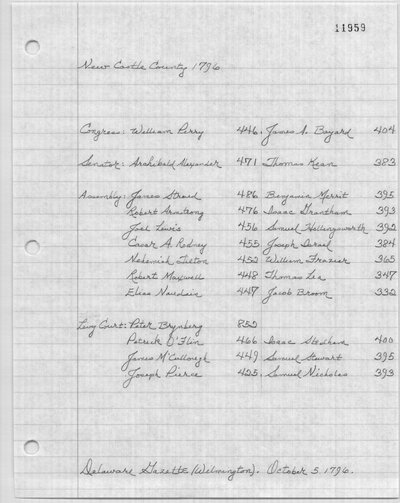 11959
New Castle County 1796
Congress: William Perry 446. James A. Bayard 404
Senator: Archibald Alexander 471 Thomas Kean 383
Assembly: James Stroud 486 Benjamin Merrit 395
Robert Armstrong 476 Isaac Grantham 393
Joel Lewis 456 Samuel Hollingsworth 392
Cesar A. Rodney 455 Joseph Israel 384
Nehemiah Tilton 452 William Frazier 365
Robert Maxwell 448 Thomas Lea 347
Elias Naudain 447 Jacob Broom 332
Levy Curt: Peter Brynberg 852
Patrick O'Flin 466 Isaac Stedham 400
James M'Cullough 449 Samuel Stewart 395
Joseph Pierce 425. Samuel Nicholes 393
Delaware Gazette (Wilmington). October 5. 1796.